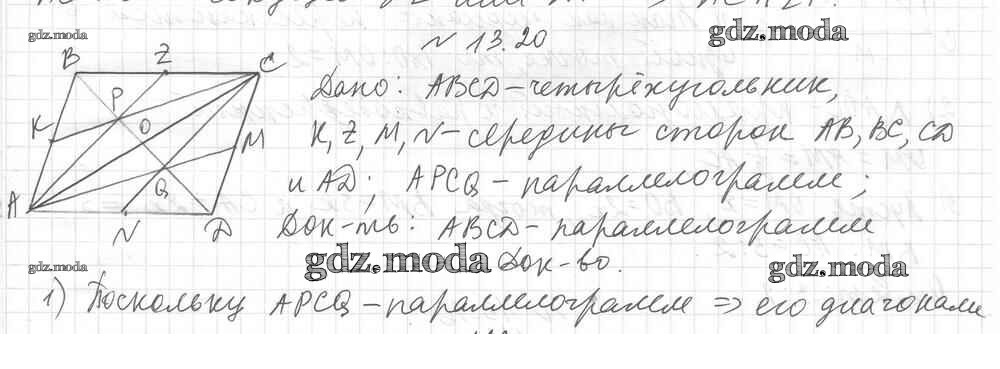 gdz.moda
gdz.moda
N 13.20
B Z C
Дано: ABCD-четырёхугольник,
P
K O M
K, Z, M, N-середины сторон AB, BC, CD
Q
A N D
и AD; APCQ-параллелограмм;
Док-ть: ABCD-параллелограмм
gdz.moda
gdz.moda
Док-во.
gdz.moda
1) Поскольку APCQ-параллелограмм => его диагонали